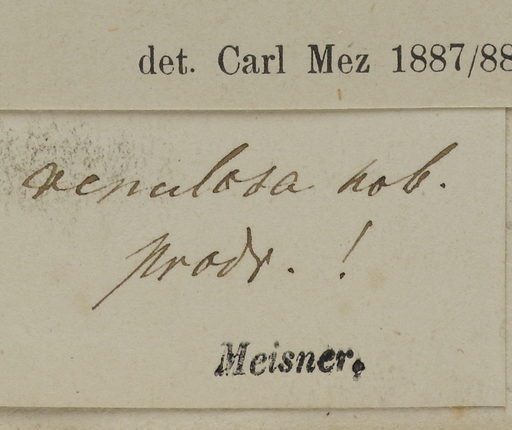 det. Carl Mez 1887/88
venulosa nob.
prodr. !
Meisner.